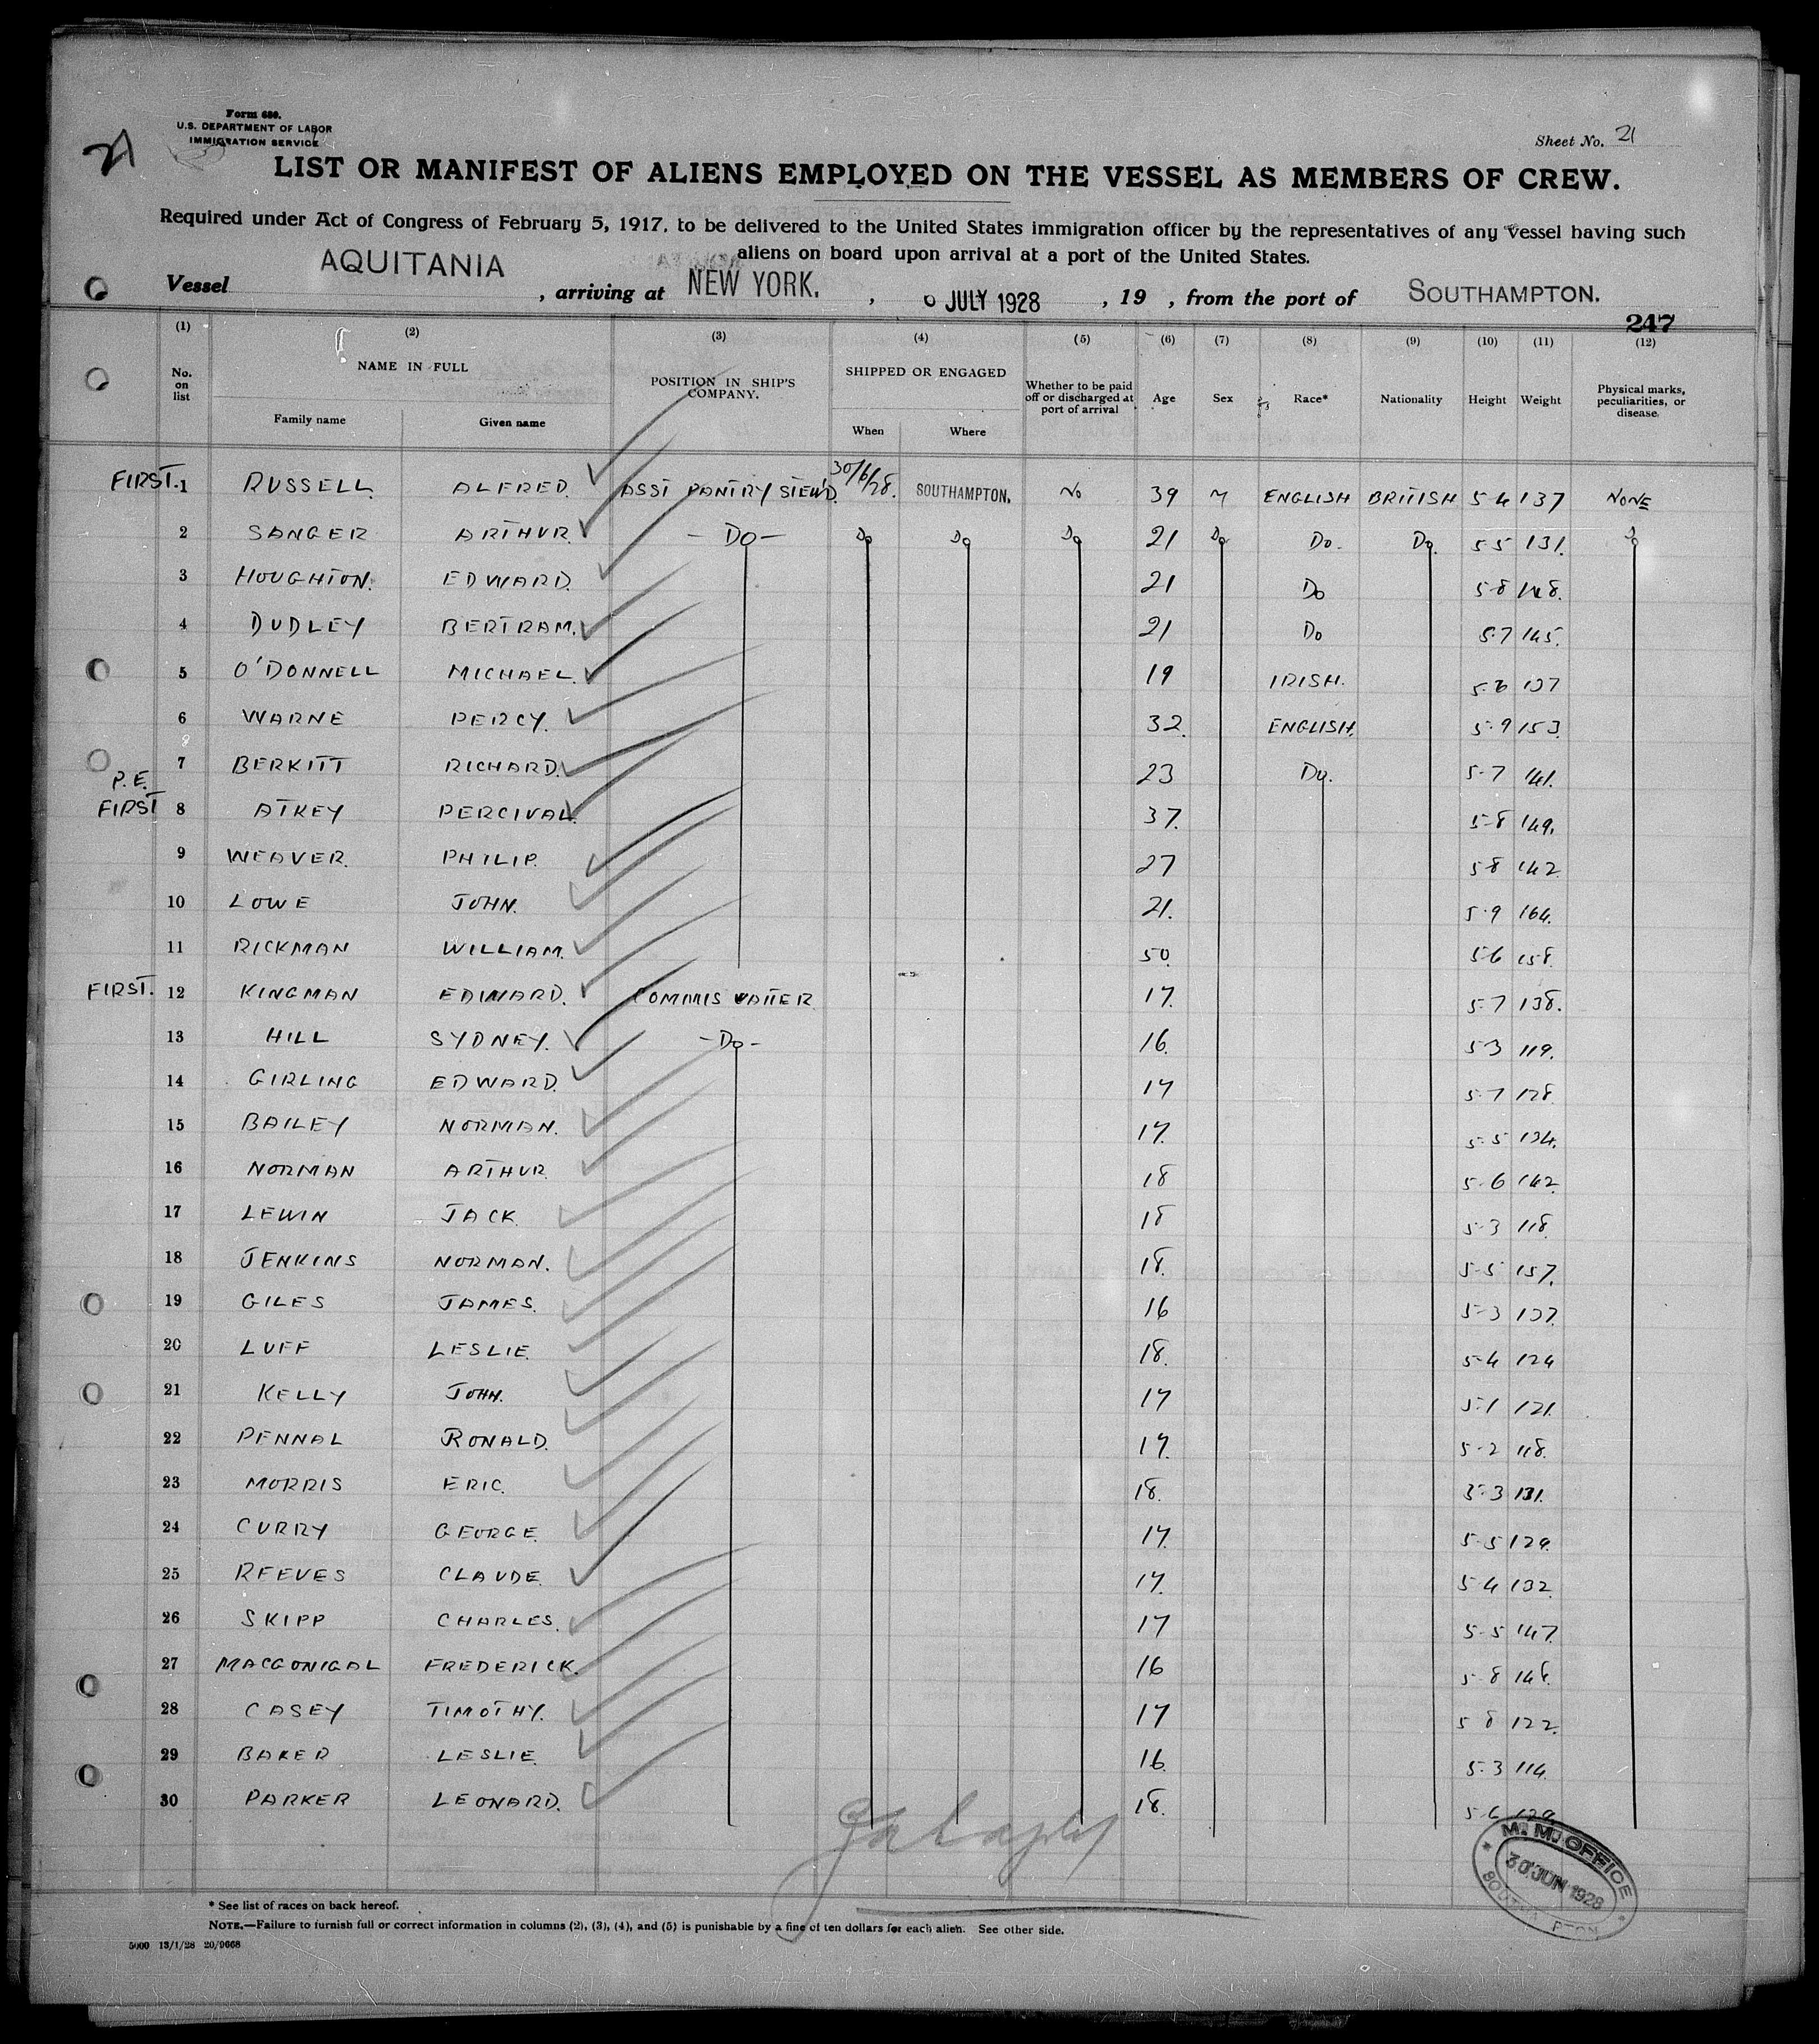 Form 680.
U.S. DEPARTMENT OF LABOR
IMMIGRATION SERVICE
21
Sheet No. 21
LIST OR MANIFEST OF ALIENS EMPLOYED ON THE VESSEL AS MEMBERS OF CREW.
Required under Act of Congress of February 5, 1917, to be delivered to the United States immigration officer by the representatives of any vessel having such
aliens on board upon arrival at a port of the United States.
Vessel AQUITANIA , arriving at NEW YORK. , JULY 1928 , 19 , from the port of SOUTHAMPTON.
247
(1) (2) (3) (4) (5) (6) (7) (8) (9) (10) (11) (12)
No. on list NAME IN FULL Family name Given name POSITION IN SHIP'S COMPANY. SHIPPED OR ENGAGED When Where Whether to be paid off or discharged at port of arrival Age Sex Race* Nationality Height Weight Physical marks, peculiarities, or disease.
FIRST. 1 RUSSELL. ALFRED. ASST PANTRY STEW'D. 30/6/28. SOUTHAMPTON. No 39 M ENGLISH BRITISH 5-4 137 NONE
2 SANGER ARTHUR. - DO - Do Do Do 21 Do Do. Do. 5-5 131. Do
3 HOUGHTON. EDWARD. 21 Do 5-8 148.
4 DUDLEY BERTRAM. 21 Do 5-7 145.
5 O'DONNELL MICHAEL. 19 IRISH. 137
6 WARNE PERCY. 32. ENGLISH. 5-9 153.
7 BERKITT RICHARD. 23 Do. 5-7 141.
P.E.
FIRST 8 ATKEY PERCIVAL. 37. 5-8 149.
9 WEAVER. PHILIP. 27 5-8 142.
10 LOWE JOHN. 21. 5-9 164.
11 RICKMAN WILLIAM. 50. 5-6 158.
FIRST. 12 KINGMAN EDWARD. COMMIS WAITER 17. 5-7 138.
13 HILL SYDNEY. - Do - 16. 5-3 119.
14 GIRLING EDWARD. 17 5-7 128.
15 BAILEY NORMAN. 17. 5-5 134.
16 NORMAN ARTHUR 18 5-6 142.
17 LEWIN JACK 18 5-3 118.
18 JENKINS NORMAN. 18. 5-5 157.
19 GILES JAMES. 16 5-3 137.
20 LUFF LESLIE. 18. 5-4 124
21 KELLY JOHN. 17 5-1 121.
22 PENNAL RONALD. 17. 5-2 118.
23 MORRIS ERIC. 18. 5-3 131.
24 CURRY GEORGE. 17. 5-5 129.
25 REEVES CLAUDE. 17. 5-4 132.
26 SKIPP CHARLES. 17 5-5 147.
27 MACGONIGAL FREDERICK. 16 5-8
28 CASEY TIMOTHY. 17 5 8 122.
29 BAKER LESLIE. 16. 5-3 114.
30 PARKER LEONARD. 18. 129
M. M. OFFICE
30 JUN 1928
* See list of races on back hereof.
NOTE.—Failure to furnish full or correct information in columns (2), (3), (4), and (5) is punishable by a fine of ten dollars for each alien. See other side.
5000 13/1/28 20/9668